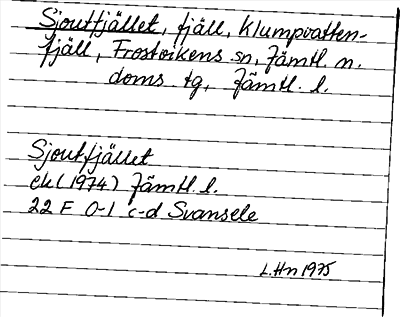 Sjoutfjället, fjäll, Klumpvatten-
fjäll, Frostvikens sn, Jämtl. n.
doms. tg, Jämtl. l.
Sjoutfjället
ek (1974) Jämtl. l.
22 F 0-1 c-d Svansele
L.Hn 1975